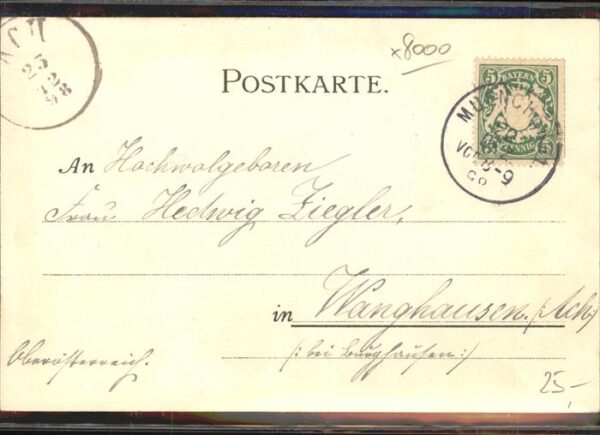 x8000
23
12
98
POSTKARTE.
5 BAYERN 5
PFENNIG
MUENCHEN
VOR. 8-9
98
An Hochwolgeboren
Frau Hedwig Ziegler,
in Wanghausen. (: Ach:)
Oberösterreich.
(: bei Burghausen :)
25,-